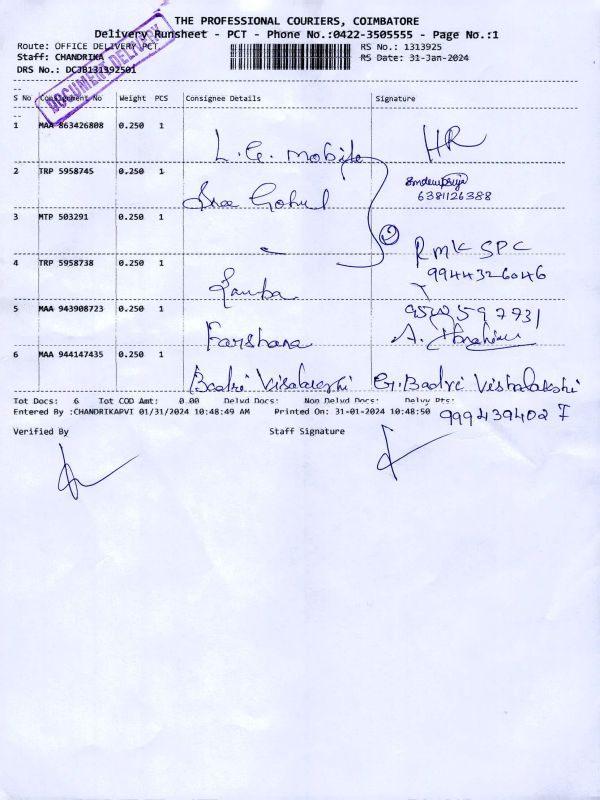 THE PROFESSIONAL COURIERS, COIMBATORE
Delivery Runsheet - PCT - Phone No.:0422-3505555 - Page No.:1
Route: OFFICE DELIVERY PCT
RS No.: 1313925
Staff: CHANDRIKA
RS Date: 31-Jan-2024
DRS No.: DCJB131392501
DOCUMENT DELIVERY
S No Consignment No Weight PCS Consignee Details Signature
1 MAA 863426808 0.250 1 L.G. mobile HR
2 TRP 5958745 0.250 1 Sree Gokul
6381126388
3 MTP 503291 0.250 1
RMK SPC
4 TRP 5958738 0.250 1 9944326046
5 MAA 943908723 0.250 1 Farshana
6 MAA 944147435 0.250 1 Badri Visalakshi G. Badri Vishalakshi
Tot Docs: 6 Tot COD Amt: 0.00 Delvd Docs: Non Delvd Docs: Delvy Pts:
Entered By :CHANDRIKAPVI 01/31/2024 10:48:49 AM Printed On: 31-01-2024 10:48:50
Verified By Staff Signature